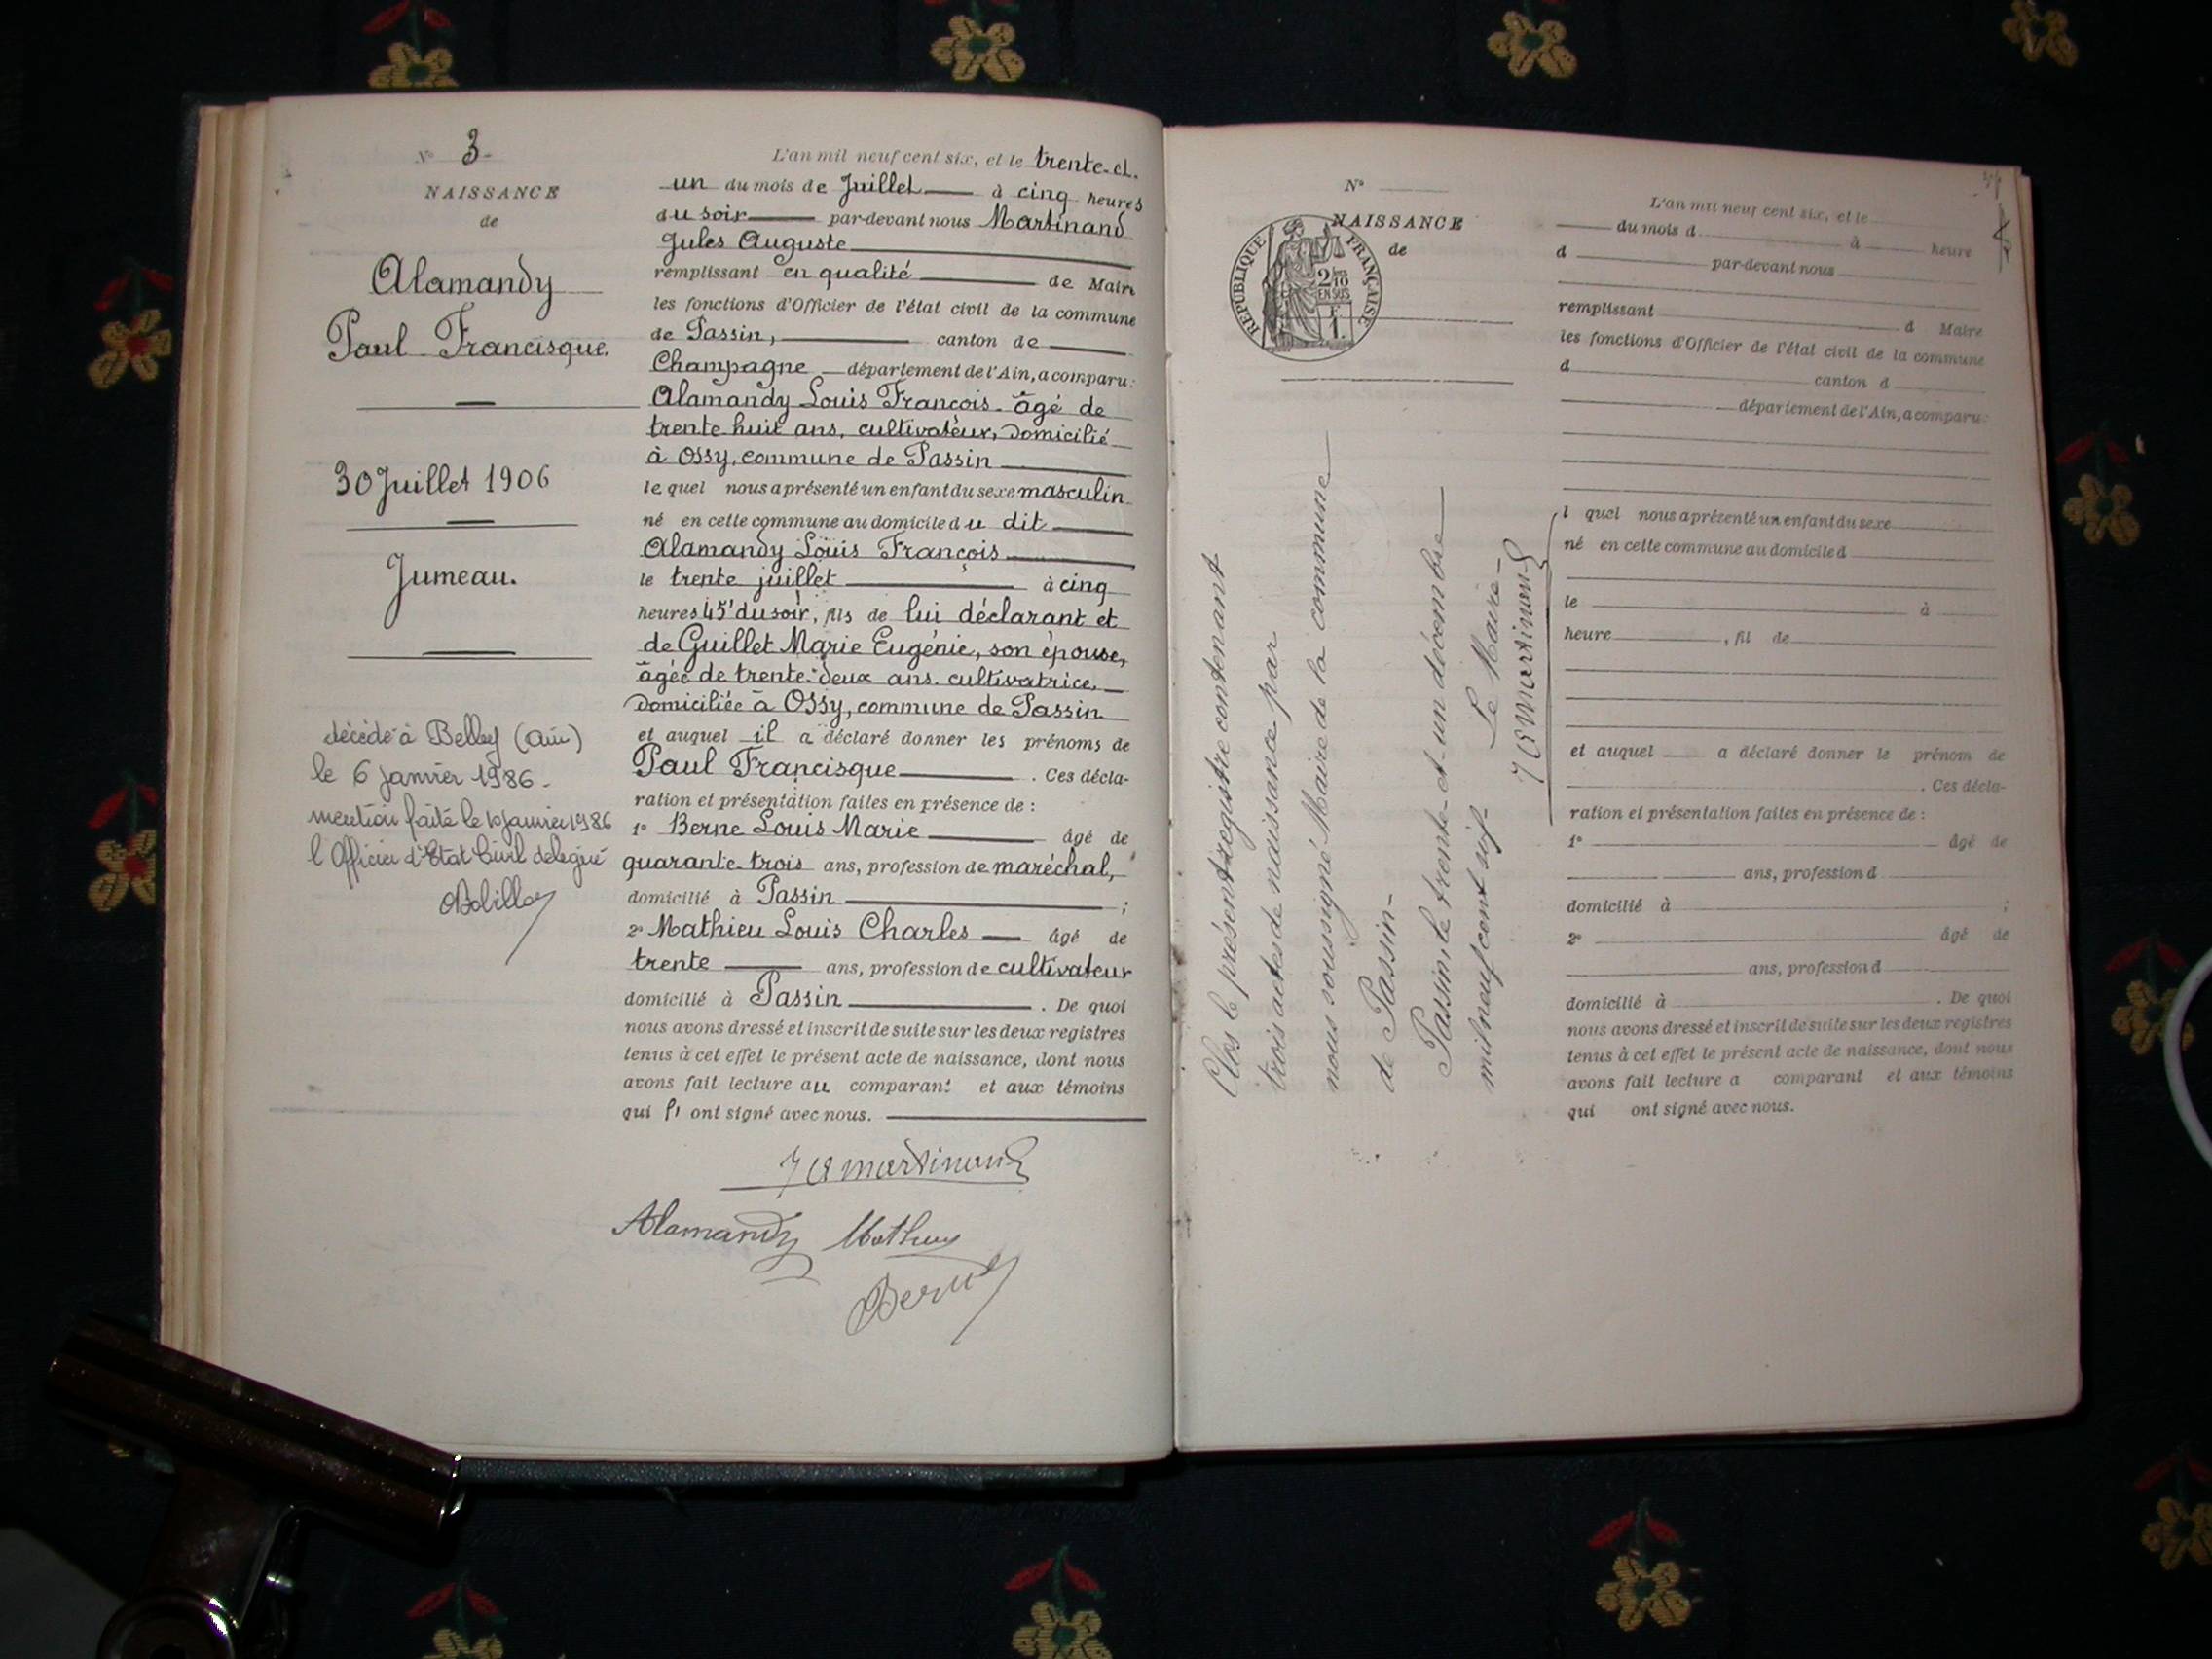 N° 3-
NAISSANCE
de
Alamandy
Paul Francisque.
30 Juillet 1906
Jumeau.
décédé à Belley (Ain)
le 6 janvier 1986-
mention faite le 10 janvier 1986
l'Officier d'Etat Civil délégué
L'an mil neuf cent six, et le trente-et.
un du mois de Juillet à cinq heures
du soir par-devant nous Martinand
Jules Auguste
remplissant en qualité de Maire
les fonctions d'Officier de l'état civil de la commune
de Passin, canton de
Champagne département de l'Ain, a comparu:
Alamandy Louis François âgé de
trente huit ans, cultivateur, domicilié
à Ossy, commune de Passin
lequel nous a présenté un enfant du sexe masculin
né en cette commune au domicile du dit
Alamandy Louis François
le trente juillet à cinq
heures 45' du soir, fils de lui déclarant et
de Guillet Marie Eugénie, son épouse,
âgée de trente-deux ans. cultivatrice,
domiciliée à Ossy, commune de Passin
et auquel il a déclaré donner les prénoms de
Paul Francisque. Ces décla-
ration et présentation faites en présence de :
1° Berne Louis Marie âgé de
quarante-trois ans, profession de maréchal,
domicilié à Passin ;
2° Mathieu Louis Charles âgé de
trente ans, profession de cultivateur
domicilié à Passin . De quoi
nous avons dressé et inscrit de suite sur les deux registres
tenus à cet effet le présent acte de naissance, dont nous
avons fait lecture au comparant et aux témoins
qui ont signé avec nous.
J A Martinand
Alamandy Mathieu
Berne
N°
NAISSANCE
de
RÉPUBLIQUE FRANÇAISE
2/10
EN SUS
1.
Clos le présent registre contenant
trois actes de naissance par
nous soussigné Maire de la commune
de Passin-
Passin, le trente-et-un décembre
mil neuf cent six-
Le Maire-
J A Martinand
L'an mil neuf cent six, et le
du mois d à heure
d par-devant nous
remplissant d Maire
les fonctions d'Officier de l'état civil de la commune
d canton d
département de l'Ain, a comparu:
l quel nous a présenté un enfant du sexe
né en cette commune au domicile d
le à
heure , fil de
et auquel a déclaré donner le prénom de
. Ces décla-
ration et présentation faites en présence de :
1° âgé de
ans, profession d
domicilié à ;
2° âgé de
ans, profession d
domicilié à . De quoi
nous avons dressé et inscrit de suite sur les deux registres
tenus à cet effet le présent acte de naissance, dont nous
avons fait lecture a comparant et aux témoins
qui ont signé avec nous.